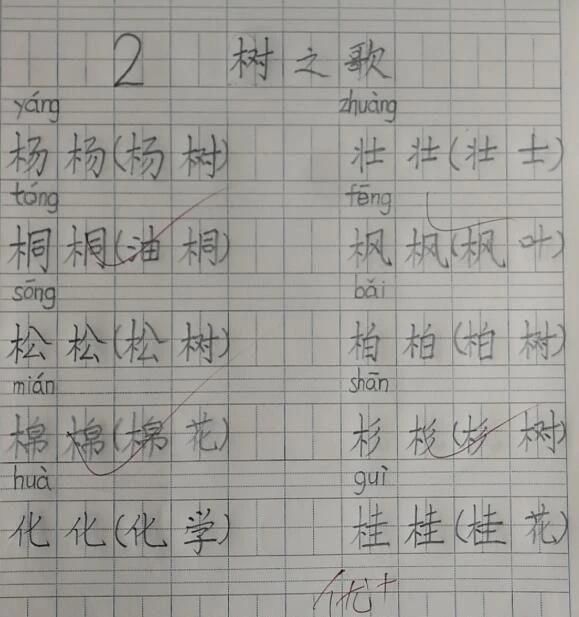 2 树之歌
yáng zhuàng
杨杨(杨树) 壮壮(壮士)
tóng fēng
桐桐(油桐) 枫枫(枫叶)
sōng bǎi
松松(松树) 柏柏(柏树)
mián shān
棉棉(棉花) 杉杉(杉树)
huà guì
化化(化学) 桂桂(桂花)
优+